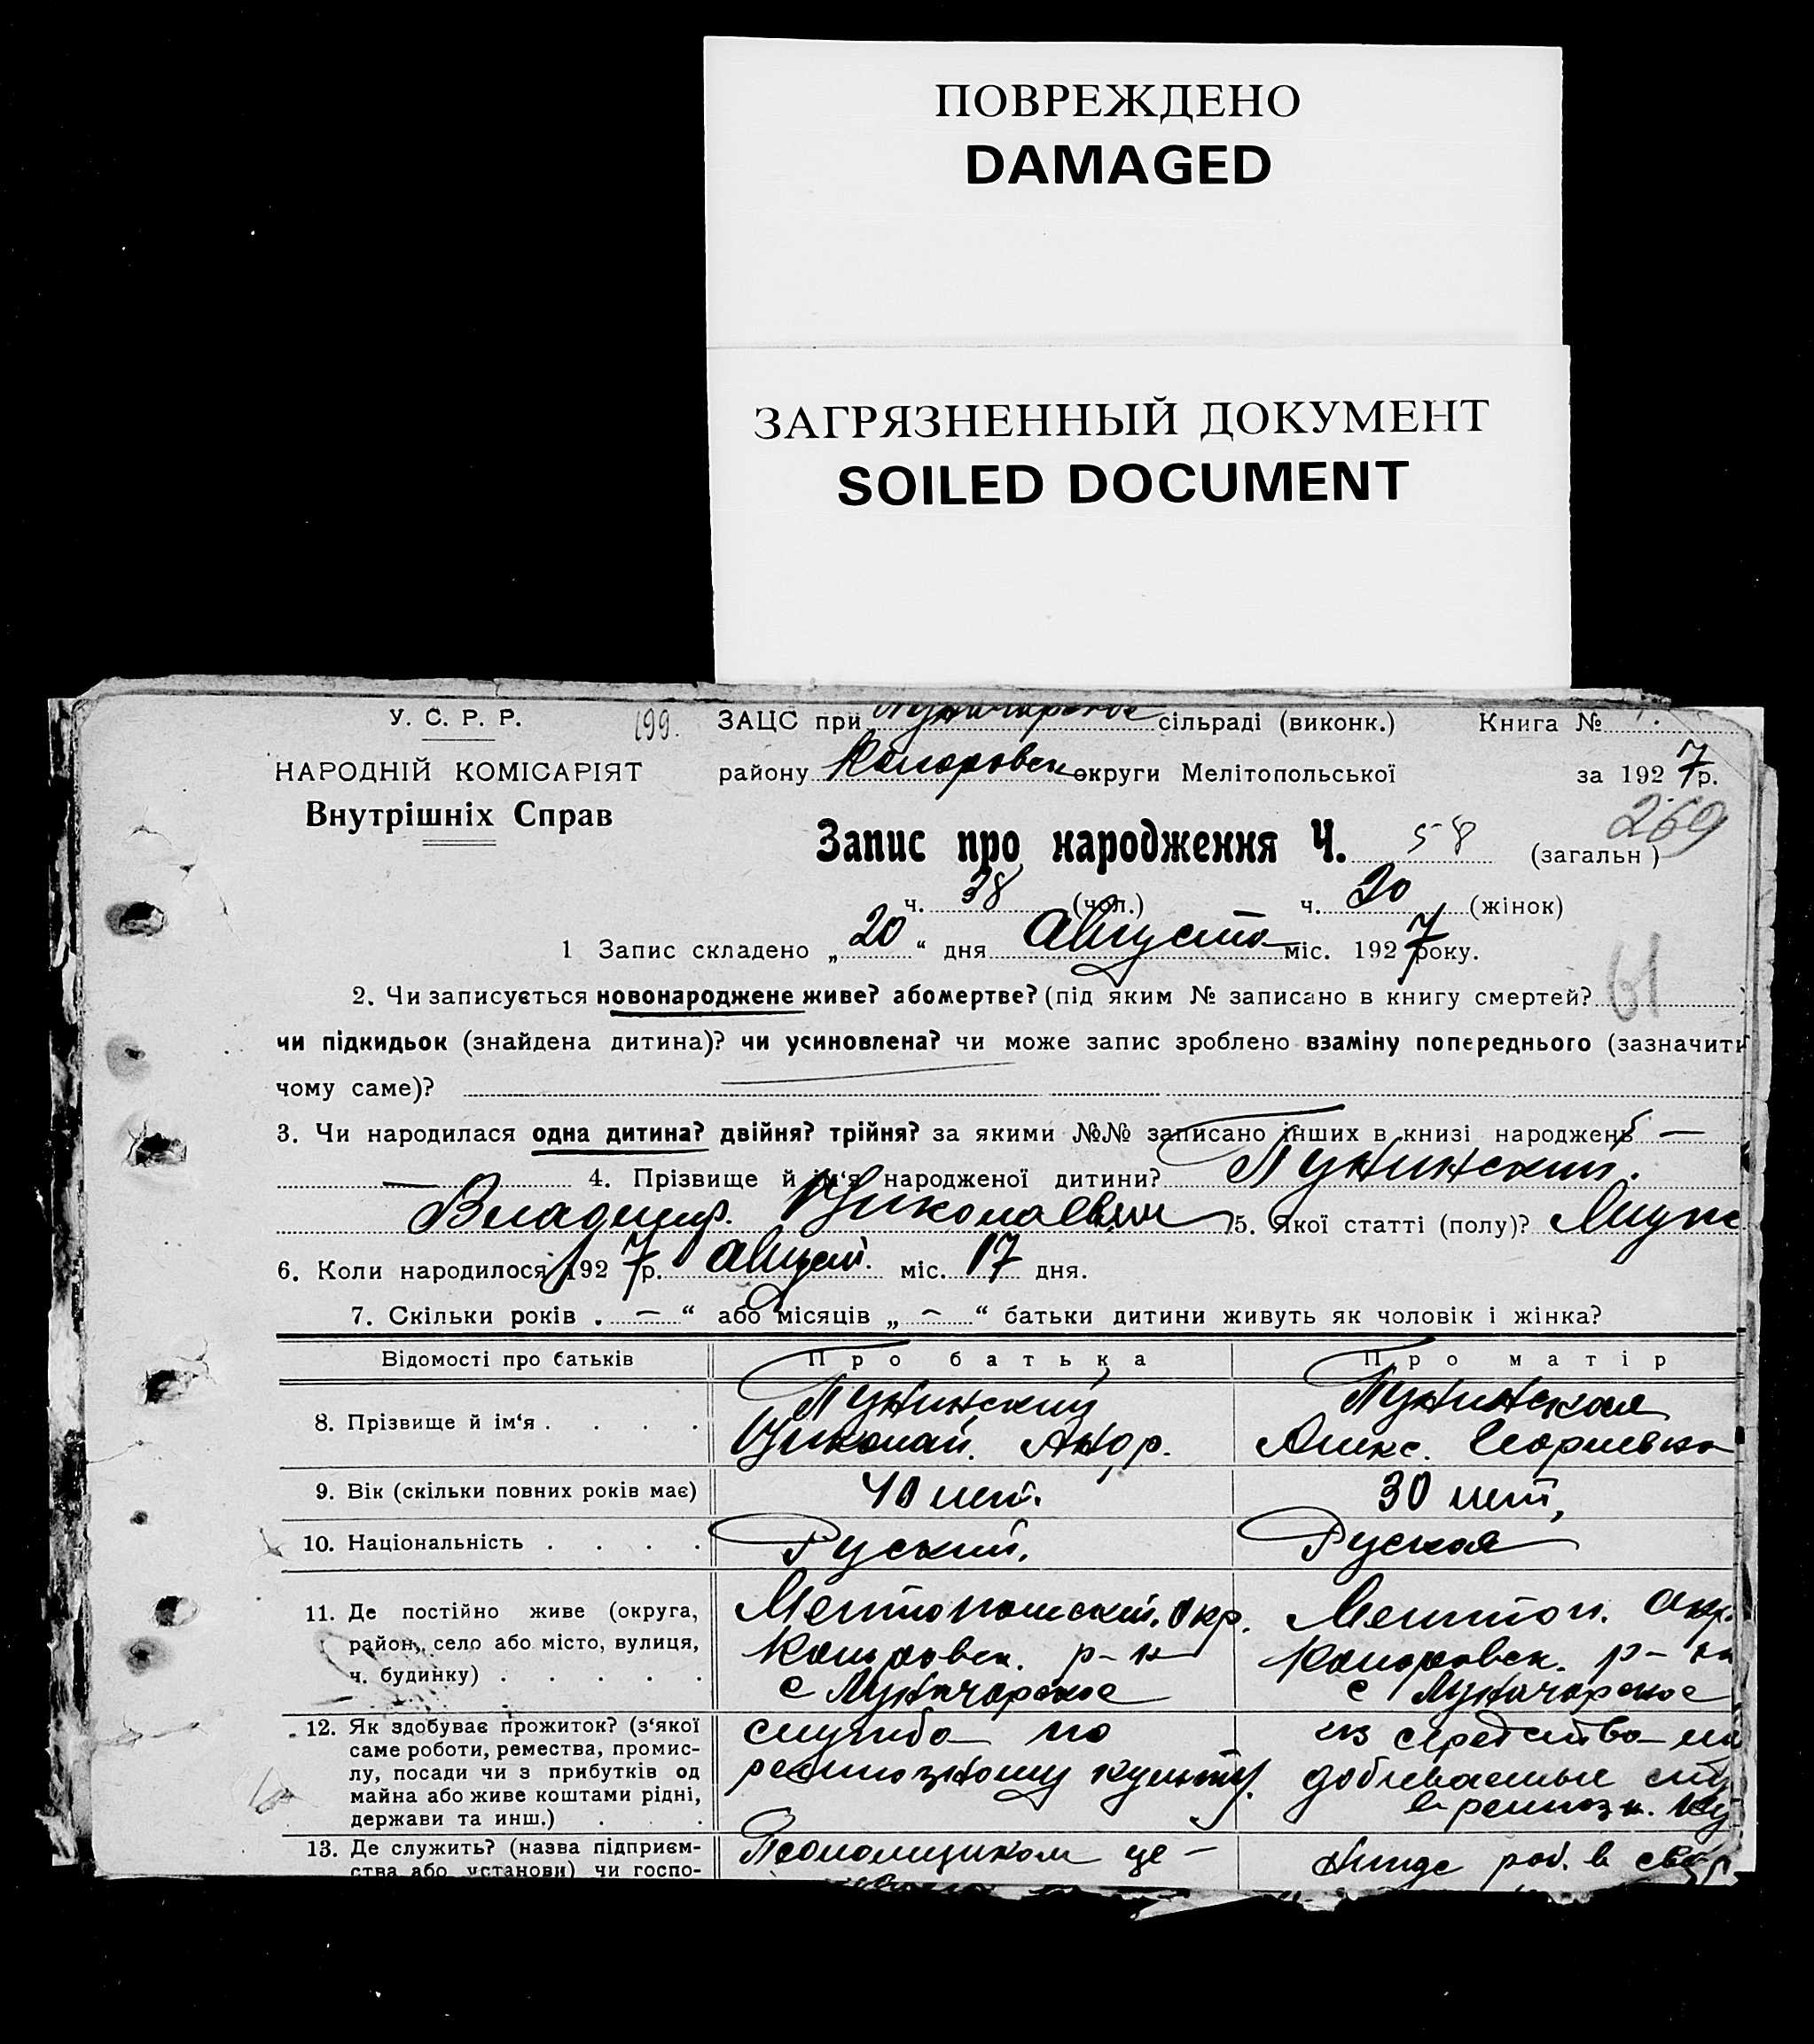 ПОВРЕЖДЕНО
DAMAGED
ЗАГРЯЗНЕННЫЙ ДОКУМЕНТ
SOILED DOCUMENT
У. С. Р. Р. 199. ЗАЦС при сільраді (виконк.) Книга №
НАРОДНІЙ КОМІСАРІЯТ району округи Мелітопольської за 1927 р.
Внутрішніх Справ
269
Запис про народження Ч. 58 (загальн )
ч. 38 (чол.) ч. 20 (жінок)
1 Запис складено „ 20 “ дня Августа міс. 1927 року.
2. Чи записується новонароджене живе? або мертве? (під яким № записано в книгу смертей? 61
чи підкидьок (знайдена дитина)? чи усиновлена? чи може запис зроблено взаміну попереднього (зазначити
чому саме)?
3. Чи народилася одна дитина? двійня? трійня? за якими №№ записано інших в книзі народжень —
— 4. Прізвище й ім‘я народженої дитини? Пунинский.
Владимир. Николаевич 5. Якої статті (полу)? Муж
6. Коли народилося 1927 р. август. міс. 17 дня.
7. Скільки років „ — “ або місяців „ — “ батьки дитини живуть як чоловік і жінка?
Відомості про батьків Про батька Про матір
8. Прізвище й ім‘я . . . . Пунинский Пунинская
Николай. Андр. Алекс.
9. Вік (скільки повних років має) 40 лет. 30 лет,
10. Національність . . . . Руский. Руская
11. Де постійно живе (округа, Окр. Мелитоп. Окр.
район, село або місто, вулиця, р-н р-на
ч. будинку) . . . . . с Луначарское с Луначарское
12. Як здобуває прожиток? (з‘якої служба по из средства
саме роботи, ремества, промис-
лу, посади чи з прибутків од религиозному культу. добываемые
майна або живе коштами рідні,
держави та инш.) . . .
13. Де служить? (назва підприєм- Псаломщиком це- раб. в
ства або установи) чи госпо-